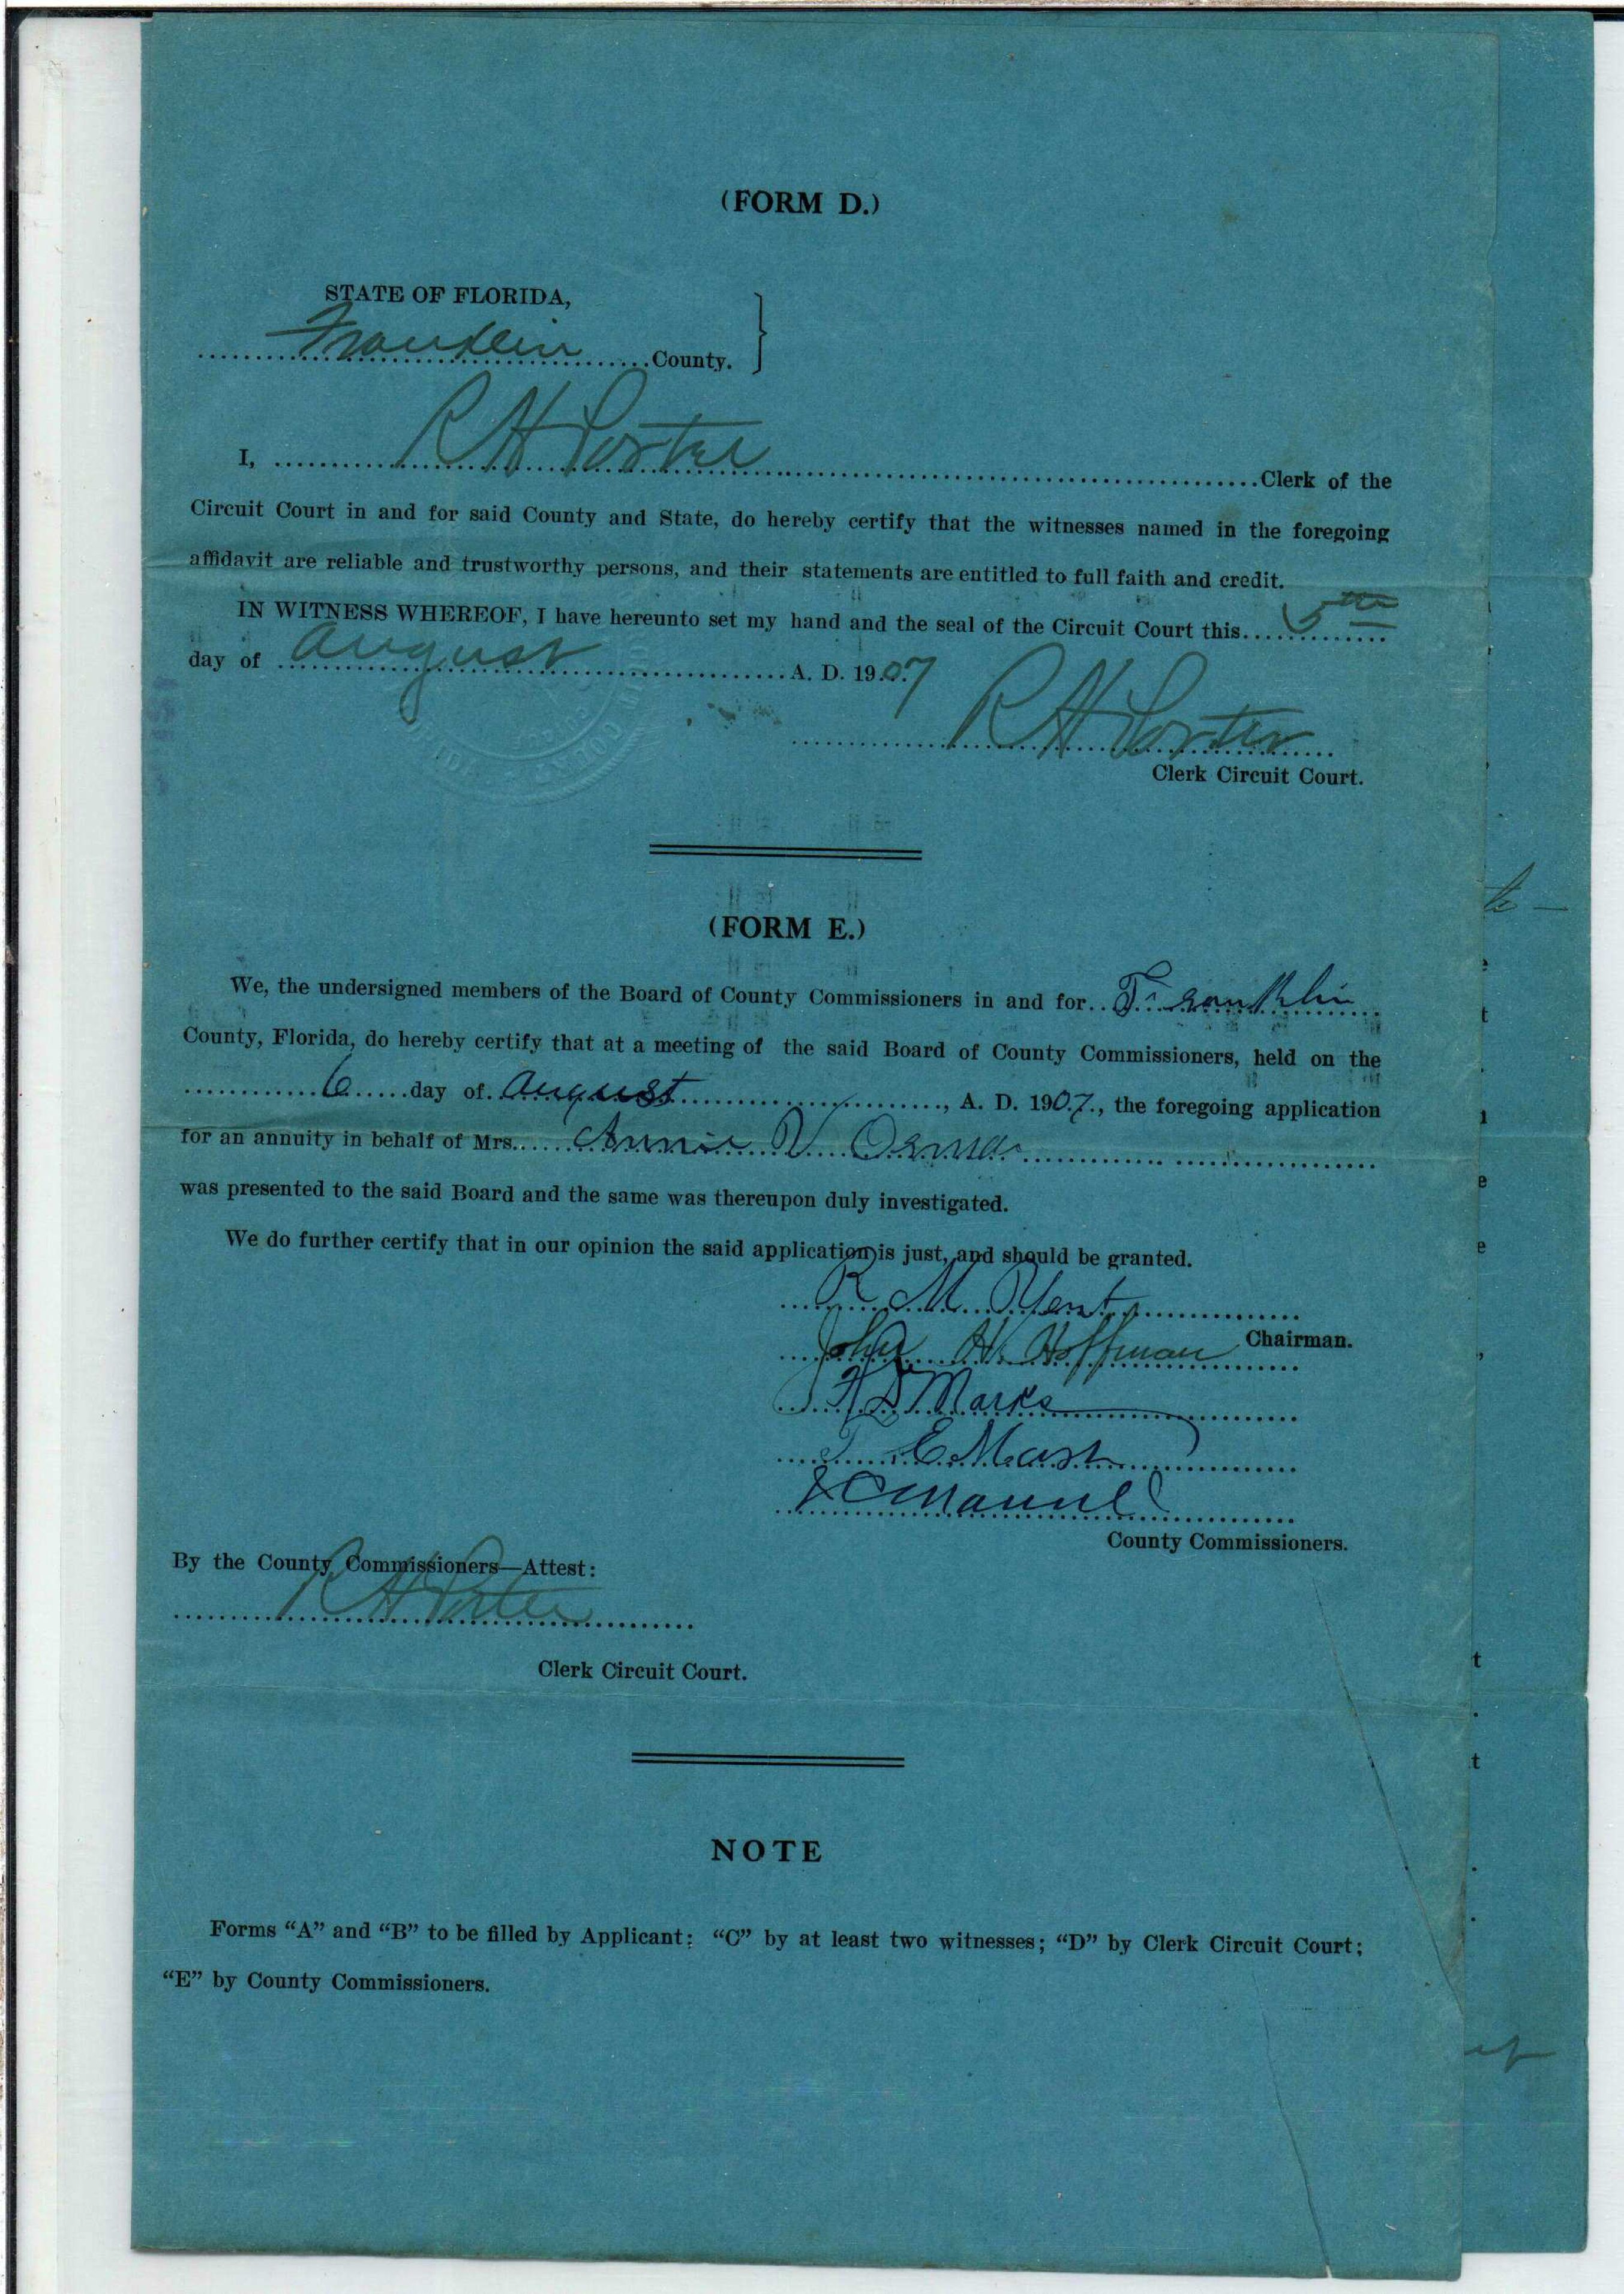 (FORM D.)
STATE OF FLORIDA,
Franklin County.
I, R H Porter Clerk of the
Circuit Court in and for said County and State, do hereby certify that the witnesses named in the foregoing
affidavit are reliable and trustworthy persons, and their statements are entitled to full faith and credit.
IN WITNESS WHEREOF, I have hereunto set my hand and the seal of the Circuit Court this 5th
day of August A. D. 1907
R H Porter
Clerk Circuit Court.
(FORM E.)
We, the undersigned members of the Board of County Commissioners in and for Franklin
County, Florida, do hereby certify that at a meeting of the said Board of County Commissioners, held on the
6 day of August, A. D. 1907., the foregoing application
for an annuity in behalf of Mrs. Annie V
was presented to the said Board and the same was thereupon duly investigated.
We do further certify that in our opinion the said application is just, and should be granted.
R M Yent
Chairman.
John H. Hoffman
Marks
E.
County Commissioners.
By the County Commissioners—Attest:
R H Porter
Clerk Circuit Court.
NOTE
Forms "A" and "B" to be filled by Applicant; "C" by at least two witnesses; "D" by Clerk Circuit Court;
"E" by County Commissioners.